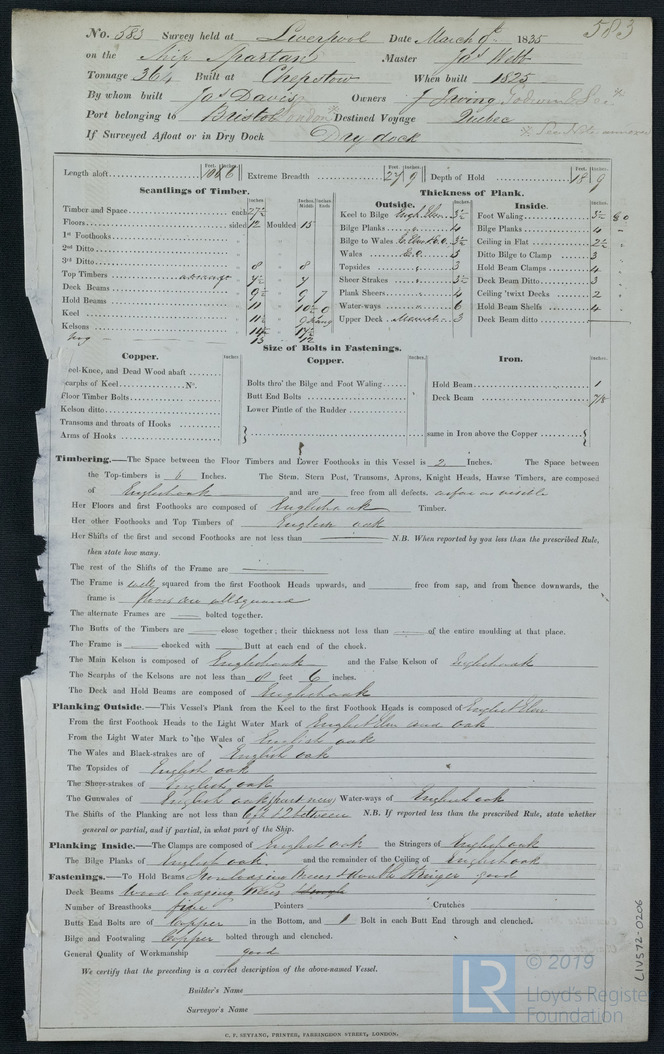 583
No. 583 Survey held at Liverpool Date March 9th 1835
on the Ship Spartan Master Jas Webb
Tonnage 364 Built at Chepstow When built 1825
By whom built Jas Davis Owners J Irving Godwin & Lee
Port belonging to Bristol London Destined Voyage Quebec
If Surveyed Afloat or in Dry Dock Dry dock
Length aloft 106 6 Extreme Breadth 27 9 Depth of Hold 18 9
Scantlings of Timber. Thickness of Plank.
Outside. Inside.
Timber and Space each 27½
Floors sided 12 Moulded 15
1st Foothooks
2nd Ditto
3rd Ditto 8 8
Top Timbers average 7½ 7
Deck Beams 9½ 9 7
Hold Beams 11 10½
Keel 11½
Kelsons 14½ 17½
13 12
Keel to Bilge Engh. Elm 3½ Foot Waling 3½
Bilge Planks 4 Bilge Planks 4
Bilge to Wales E. Elm & E.O. 3½ Ceiling in Flat 2½
Wales E.O. 5 Ditto Bilge to Clamp 3
Topsides 3 Hold Beam Clamps 4
Sheer Strakes 3½ Deck Beam Ditto 3
Plank Sheers 4 Ceiling 'twixt Decks 2
Water-ways 6 Hold Beam Shelfs 4
Upper Deck 3 Deck Beam ditto
Size of Bolts in Fastenings.
Copper. Copper. Iron.
eel-Knee, and Dead Wood abaft
carphs of Keel No.
Floor Timber Bolts
Kelson ditto
Transoms and throats of Hooks
Arms of Hooks
Bolts thro' the Bilge and Foot Waling
Butt End Bolts
Lower Pintle of the Rudder
Hold Beam 1
Deck Beam 7/8
same in Iron above the Copper
Timbering.—The Space between the Floor Timbers and Lower Foothooks in this Vessel is 2 Inches. The Space between
the Top-timbers is 6 Inches. The Stem, Stern Post, Transoms, Aprons, Knight Heads, Hawse Timbers, are composed
of English oak and are free from all defects. as far as visible
Her Floors and first Foothooks are composed of English oak Timber.
Her other Foothooks and Top Timbers of English oak
Her Shifts of the first and second Foothooks are not less than N.B. When reported by you less than the prescribed Rule,
then state how many.
The rest of the Shifts of the Frame are
The Frame is well squared from the first Foothook Heads upwards, and free from sap, and from thence downwards, the
frame is floors are well squared
The alternate Frames are bolted together.
The Butts of the Timbers are close together; their thickness not less than of the entire moulding at that place.
The Frame is chocked with Butt at each end of the chock.
The Main Kelson is composed of English oak and the False Kelson of English oak
The Scarphs of the Kelsons are not less than 8 feet 6 inches.
The Deck and Hold Beams are composed of English oak
Planking Outside.—This Vessel's Plank from the Keel to the first Foothook Heads is composed of English Elm
From the first Foothook Heads to the Light Water Mark of English Elm and oak
From the Light Water Mark to the Wales of English oak
The Wales and Black-strakes are of English oak
The Topsides of English oak
The Sheer-strakes of English oak
The Gunwales of English oak (part new) Water-ways of English oak
The Shifts of the Planking are not less than 6 ft 12 between N.B. If reported less than the prescribed Rule, state whether
general or partial, and if partial, in what part of the Ship.
Planking Inside.—The Clamps are composed of English oak the Stringers of English oak
The Bilge Planks of English oak and the remainder of the Ceiling of English oak
Fastenings.—To Hold Beams Iron lodging knees & double stringer good
Deck Beams Wood lodging knees
Number of Breasthooks five Pointers Crutches
Butts End Bolts are of Copper in the Bottom, and 1 Bolt in each Butt End through and clenched.
Bilge and Footwaling Copper bolted through and clenched.
General Quality of Workmanship good
We certify that the preceding is a correct description of the above-named Vessel.
Builder's Name
Surveyor's Name
C. F. SEYFANG, PRINTER, FARRINGDON STREET, LONDON.
LIV572-0206
LR © 2019
Lloyd's Register
Foundation